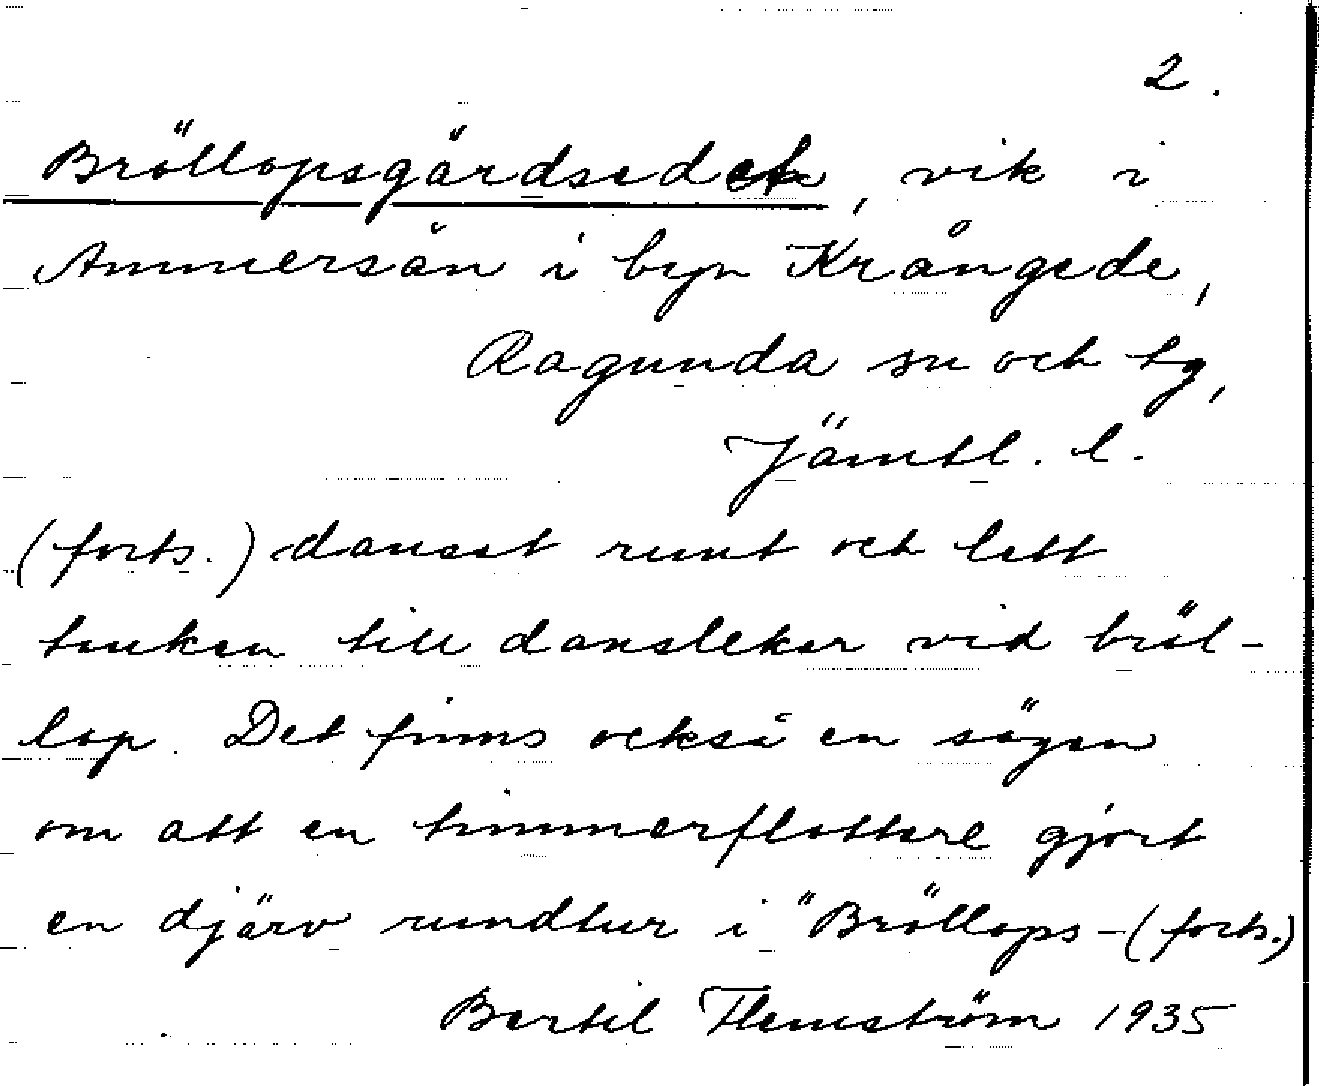 2.
Bröllopsgärdsedet, vik i
Ammersån i byn Krångede,
Ragunda sn och tg,
Jämtl. l.
(forts.) dansat runt och lett
tanken till danslekar vid bröl-
lop. Det finns också en sägen
om att en timmerflottare gjort
en djärv rundtur i "Bröllops-(forts.)
Bertil Flemström 1935